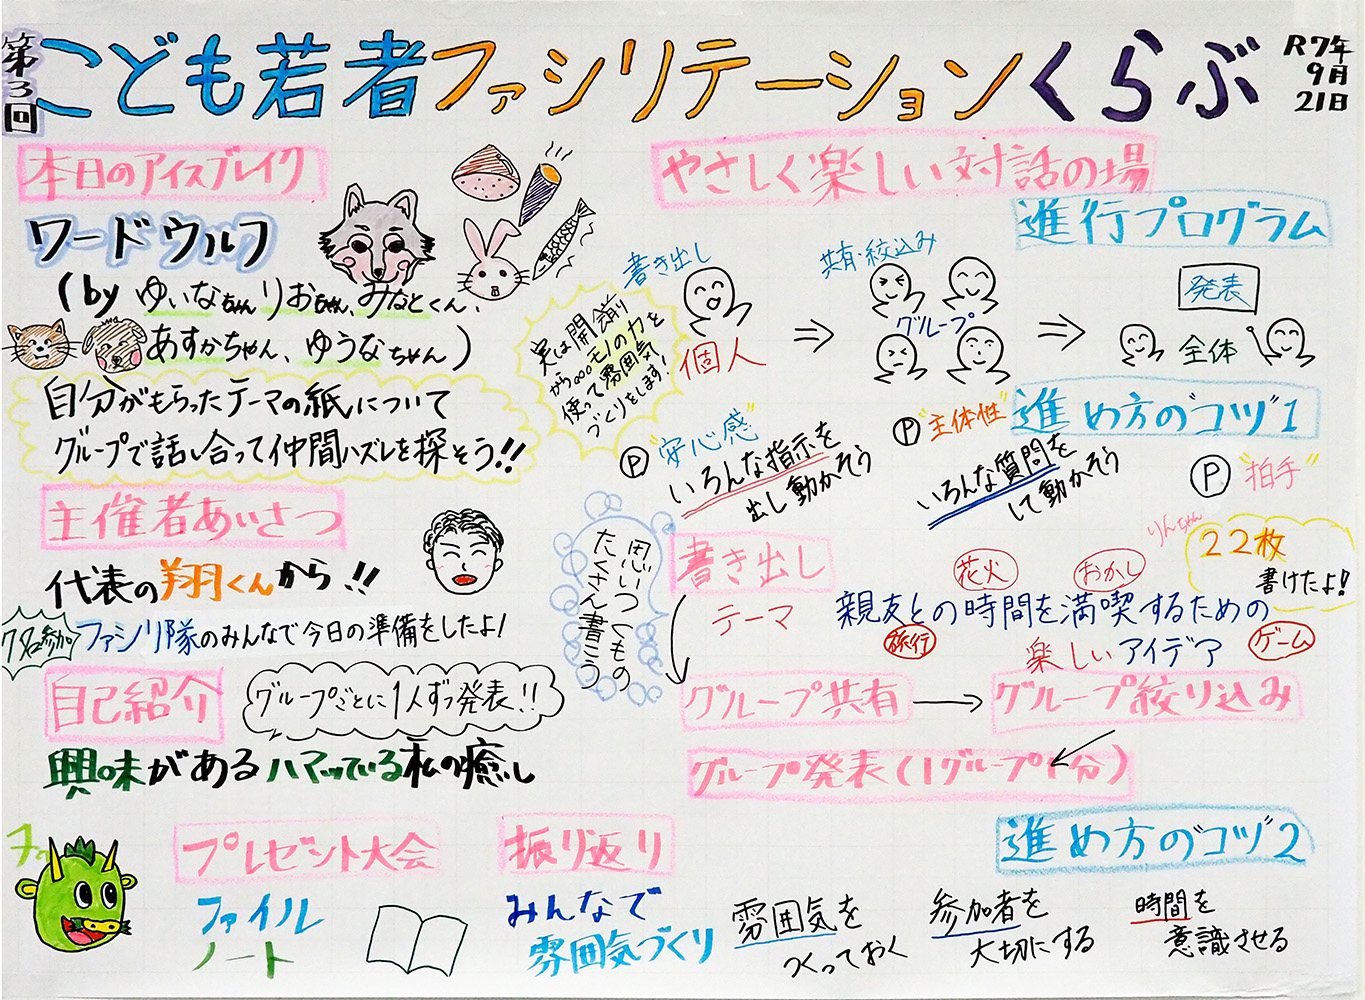 第3回
こども若者ファシリテーションくらぶ
R7年
9月
21日
本日のアイスブレイク
ワードウルフ
(by ゆいなちゃん、りおちゃん、みなとくん、
あすかちゃん、ゆうなちゃん)
自分がもらったテーマの紙について
グループで話し合って仲間ハズレを探そう!!
主催者あいさつ
代表の翔くんから!!
7名参加
ファシリ隊のみんなで今日の準備をしたよ!
自己紹介
グループごとに1人ずつ発表!!
興味があるハマっている私の癒し
プレゼント大会
ファイル
ノート
振り返り
みんなで
雰囲気づくり
やさしく楽しい対話の場
進行プログラム
実は開始前
から。。。モノの力を
使って雰囲気
づくりをします!
書き出し
個人
⇒
共有・絞込み
グループ
⇒
発表
全体
進め方の"コツ"1
Ⓟ"安心感"
いろんな指示を
出し動かそう
Ⓟ"主体性"
いろんな質問を
して動かそう
Ⓟ"拍手"
思いつくもの
たくさん書こう
書き出し
りんちゃん
22枚
書けたよ!
テーマ
親友との時間を満喫するための
楽しいアイデア
花火
おかし
旅行
ゲーム
グループ共有→グループ絞り込み
グループ発表(1グループ1分)
進め方の"コツ"2
雰囲気を
つくっておく
参加者を
大切にする
時間を
意識させる